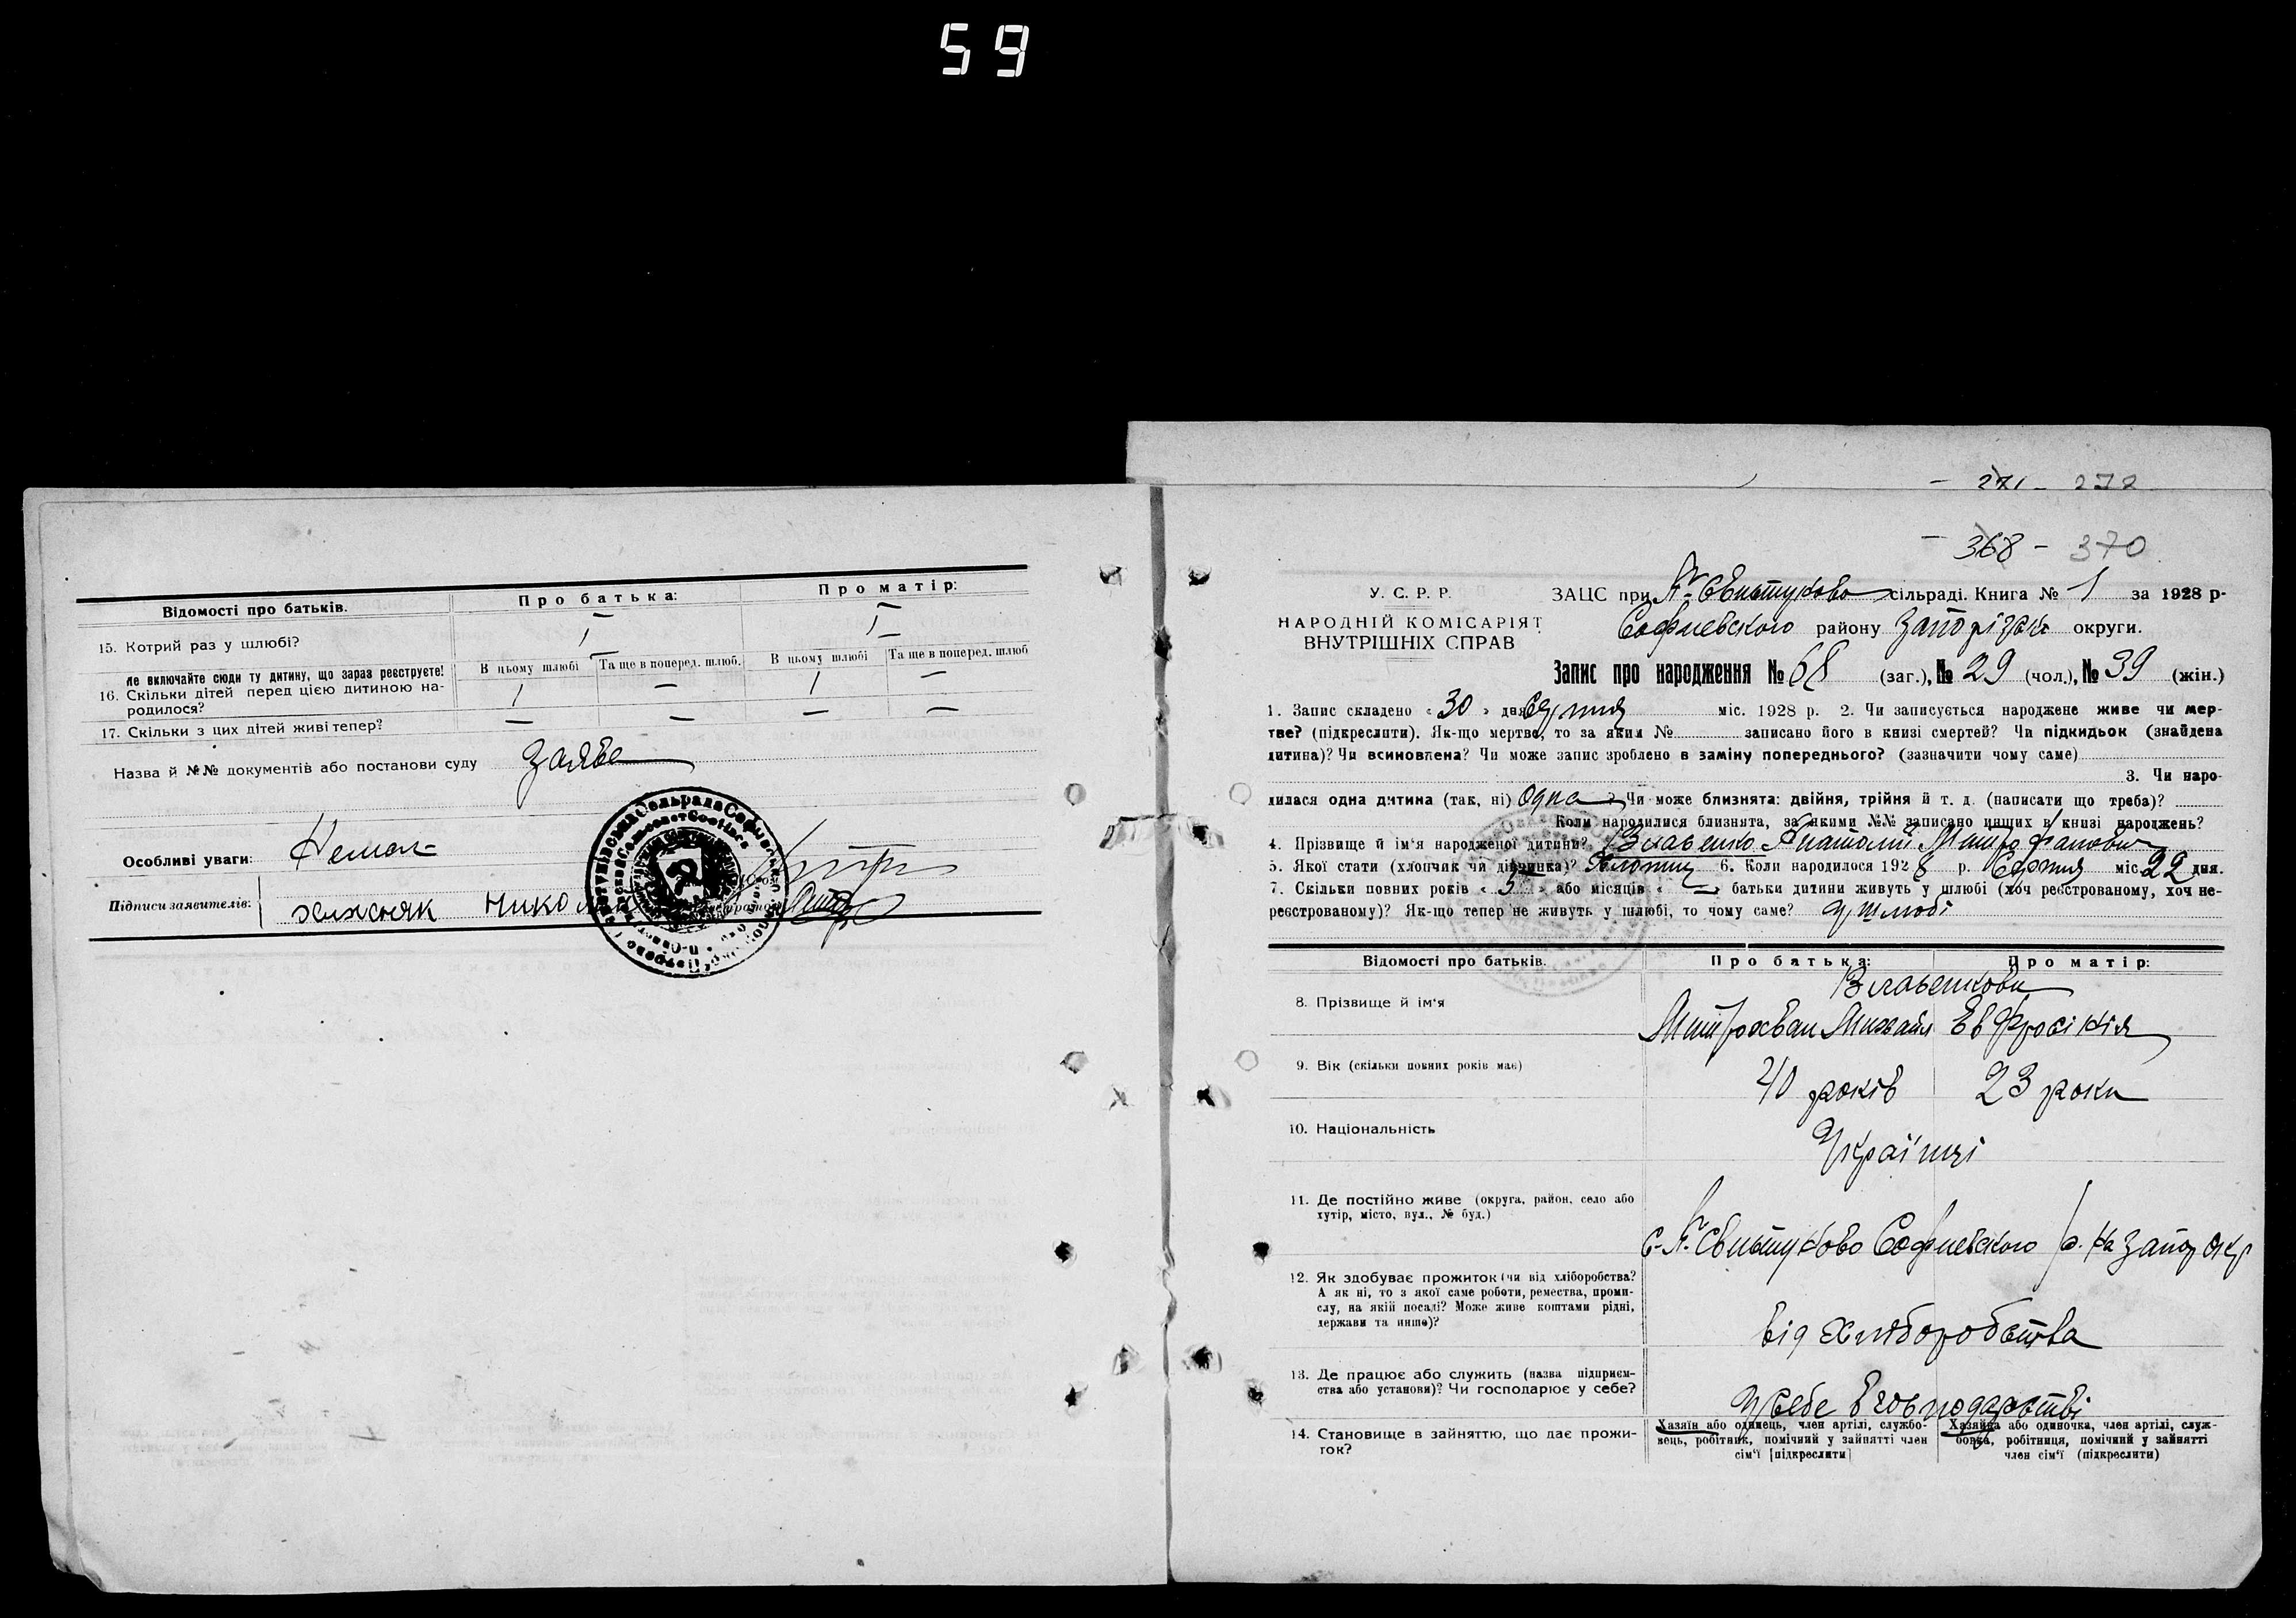 59
Відомості про батьків.
Про батька:
Про матір:
15. Котрий раз у шлюбі?
I
I
не включайте сюди ту дитину, що зараз реєструєте!
16. Скільки дітей перед цією дитиною на-
родилося?
В цьому шлюбі
Та ще в поперед. шлюб.
В цьому шлюбі
Та ще в поперед. шлюб
1 — 1 —
17. Скільки з цих дітей живі тепер?
— — — —
Назва й №№ документів або постанови суду Заява
Особливі уваги: Немає
Підписи заявителів: хижняк Нико
- 271 - 272
- 368 - 370
У. С. Р. Р.
НАРОДНІЙ КОМІСАРІЯТ
ВНУТРІШНІХ СПРАВ
ЗАЦС при П-Свистуново сільраді. Книга № 1 за 1928 р-
Софиевского району Запоріжж округи.
Запис про народження № 68 (заг.), № 29 (чол.), № 39 (жін.)
1. Запис складено « 30 » дня Серпня міс. 1928 р. 2. Чи записується народжене живе чи мер-
тве? (підкреслити). Як-що мертве, то за яким № записано його в книзі смертей? Чи підкидьок (знайдена
дитина)? Чи всиновлена? Чи може запис зроблено в заміну попереднього? (зазначити чому саме)
3. Чи наро-
дилася одна дитина (так, ні) Одна ? Чи може близнята: двійня, трійня й т. д. (написати що треба)?
Коли народилися близнята, за якими №№ записано инших в книзі народжень?
4. Прізвище й ім'я народженої дитини? Власенко Анатолий Митрофанович
5. Якої стати (хлопчик чи дівчинка)? Хлопчик 6. Коли народилося 1928 р. Серпня міс. 22 дня.
7. Скільки повних років « 5 » або місяців « — » батьки дитини живуть у шлюбі (хоч реєстрованому, хоч не-
реєстрованому)? Як-що тепер не живуть у шлюбі, то чому саме? У шлюбі
Відомості про батьків.
Про батька:
Про матір:
8. Прізвище й ім'я
Власенкови
Митрохван Михайл Евфросінія
9. Вік (скільки повних років має)
40 років 23 роки
10. Національність
Українці
11. Де постійно живе (округа, район, село або
хутір, місто, вул., № буд.)
с-П-Свистуново Софиевского р-на Запор окр
12. Як здобуває прожиток (чи від хліборобства?
А як ні, то з якої саме роботи, ремества, проми-
слу, на якій посаді? Може живе коштами рідні,
держави та инше)?
від Хліборобства
13. Де працює або служить (назва підприєм-
ства або установи)? Чи господарює у себе?
У себе в господарстві
14. Становище в зайняттю, що дає прожи-
ток?
Хазяїн або одинець, член артілі, службо-
вець, робітник, помічний у зайнятті член
сім'ї [підкреслити]
Хазяйка або одиночка, член артілі, служ-
бовка, робітниця, помічний у зайнятті
член сім'ї (підкреслити)